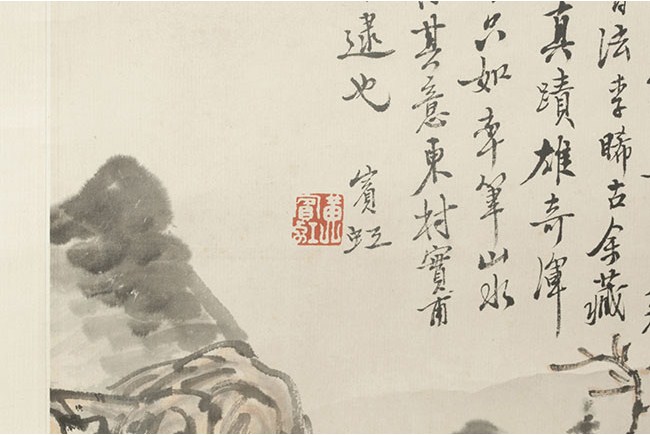 法李晞古余藏
真蹟雄奇渾
只如率筆山水
其意東村實甫
逮也
賓虹
黃賓虹